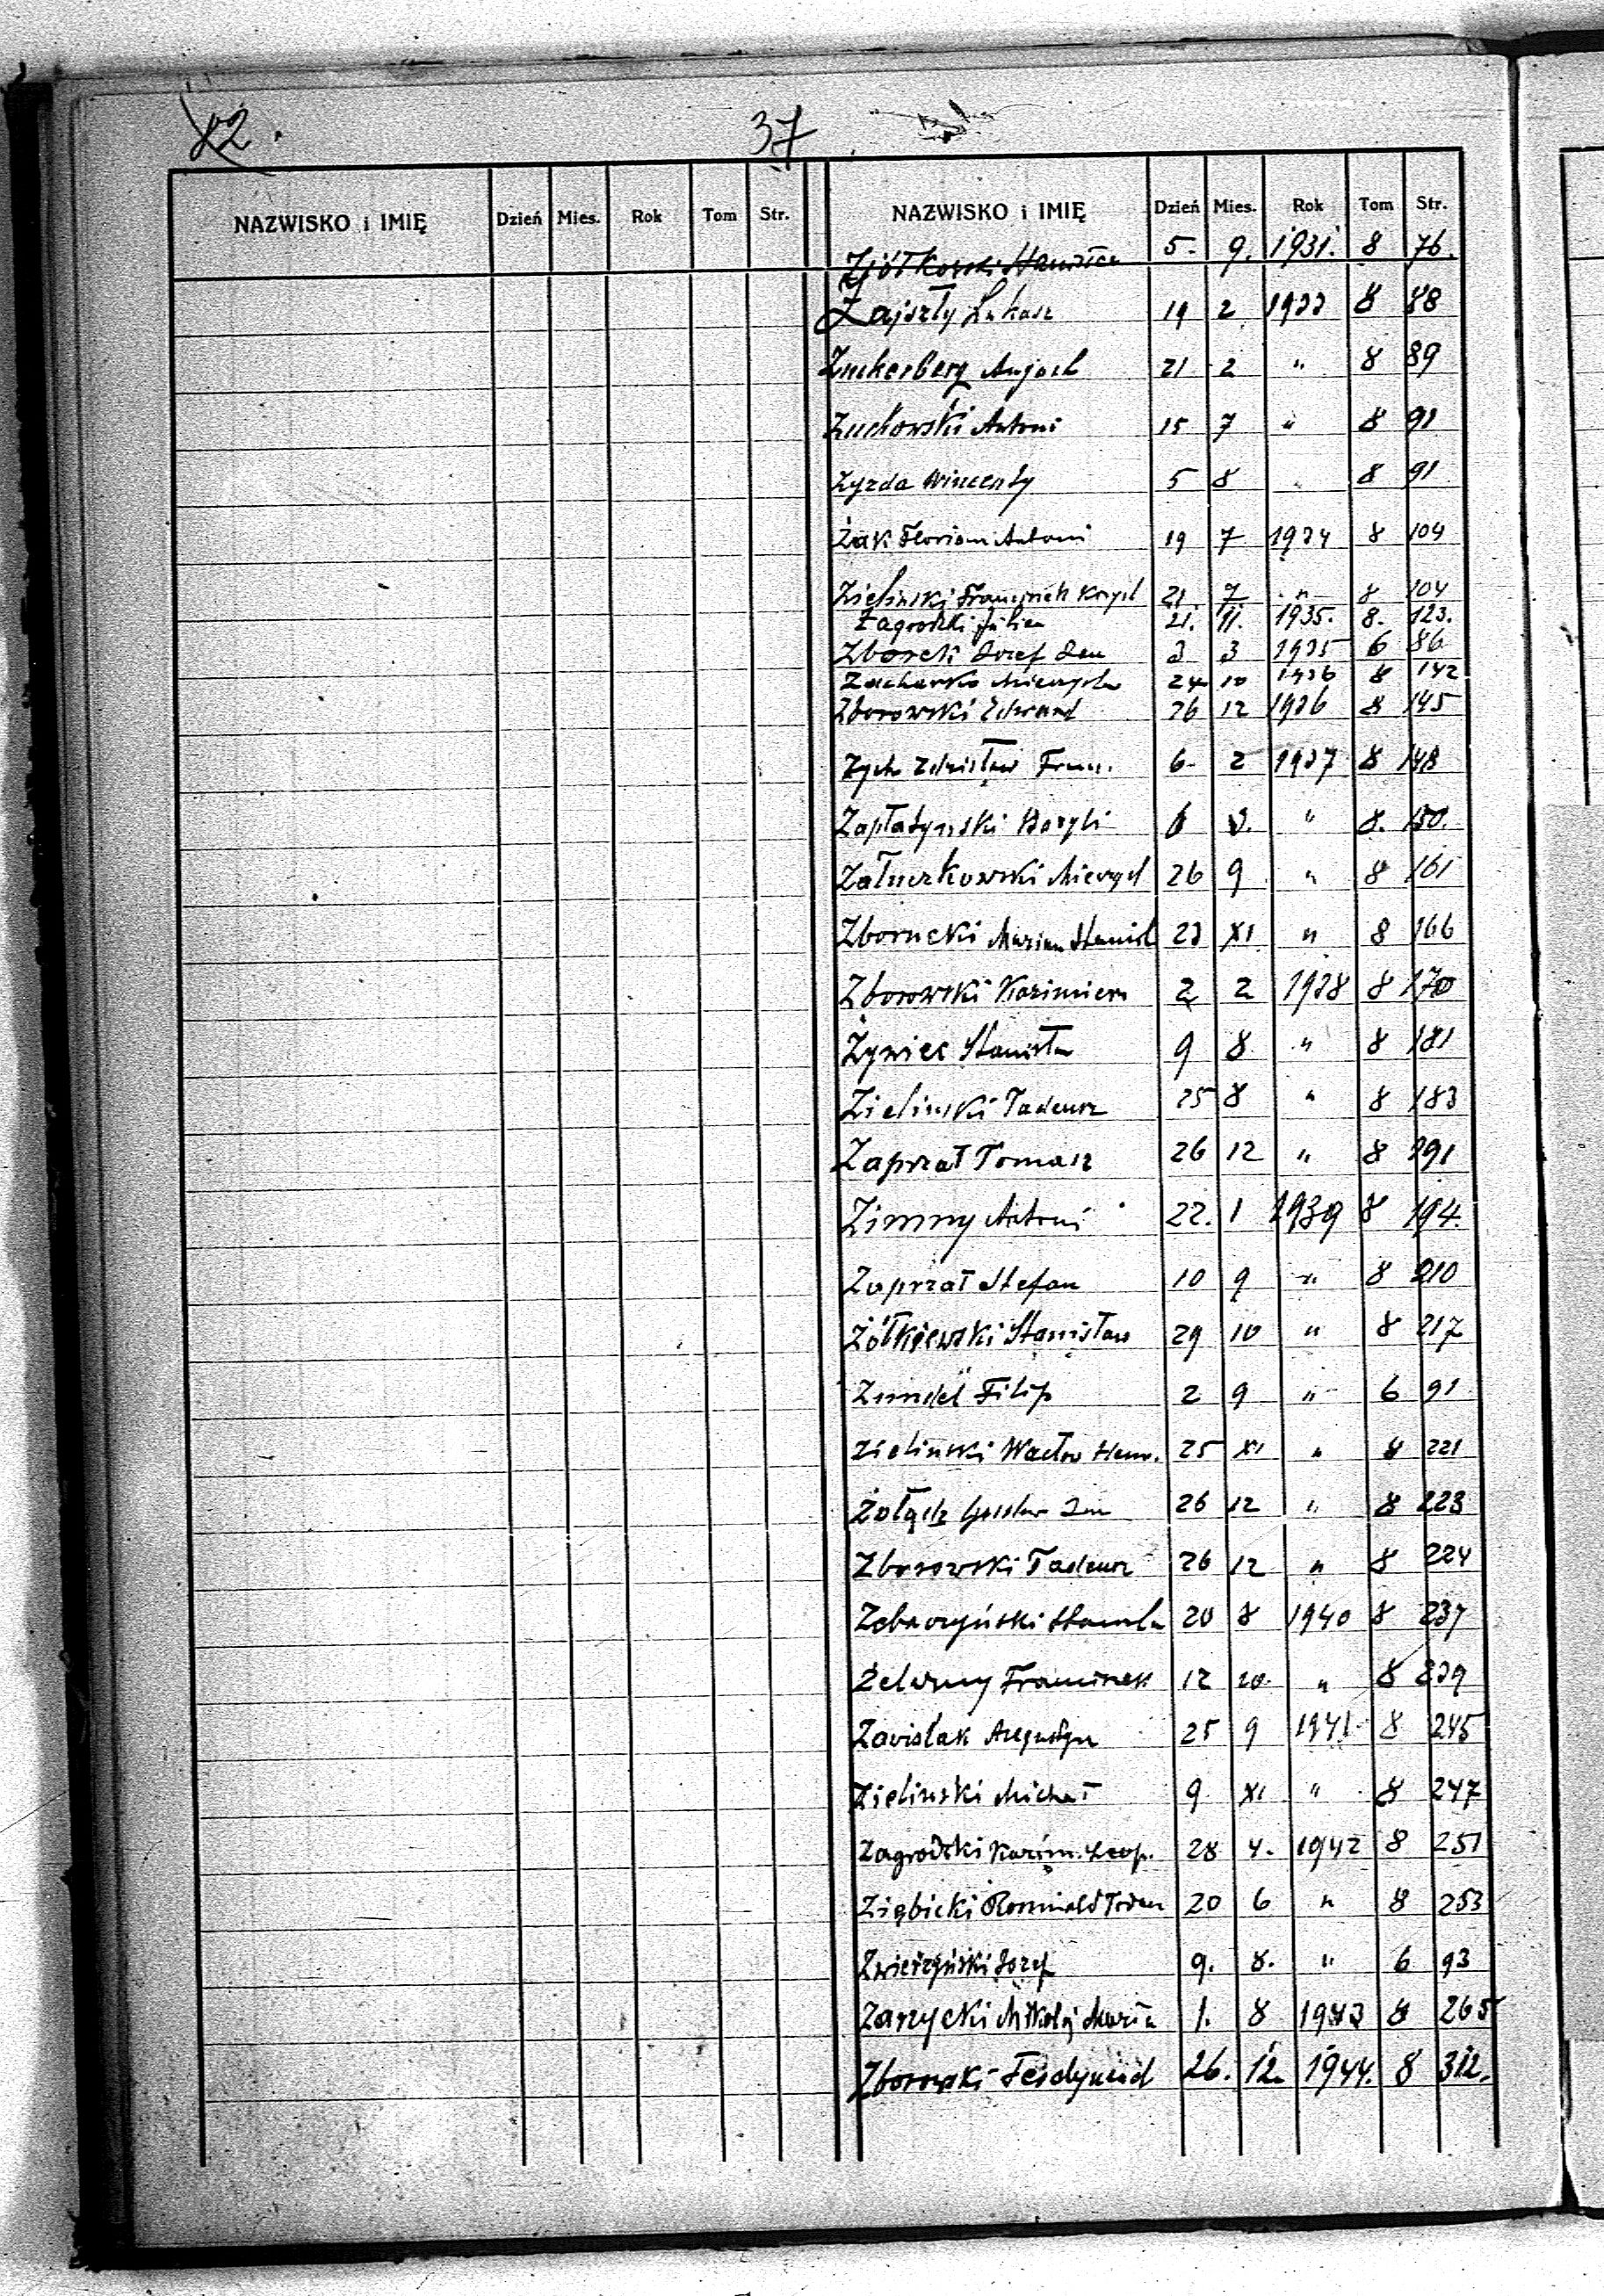 42.
37
NAZWISKO i IMIĘ Dzień Mies. Rok Tom Str. NAZWISKO i IMIĘ Dzień Mies. Rok Tom Str.
5 9. 1931. 8 76.
Zajszły Łukasz 19 2 1933 8 88
Zuckerberg 21 2 " 8 89
Zuchowski Antoni 15 7 " 8 91
Zyzda Wincenty 5 8 " 8 91
Żak Florian Antoni 19 7 1934 8 104
Zieliński 21 7 " 8 104
Zagrodzki Julian 21. 11. 1935. 8. 123.
Józef Jan 3 3 1935 6 86
24 10 1936 8 142
Zborowski Edward 26 12 1936 8 145
Zych Zdzisław Fran. 6 2 1937 8 148
Zapłatyński Bazyli 6 " 8. 150.
Mieczysł 26 9 " 8 161
Zborucki Marian Stanisł 23 XI. " 8 166
Zborowski Kazimierz 2 2 1938 8 170
Żywiec Stanisła 9 8 " 8 181
Zieliński Tadeusz 25 8 " 8 183
Zaprzał Tomasz 26 12 " 8 191
Zimny Antoni 22. 1 1939 8 194.
Zaprzał Stefan 10 9 " 8 210
Żółkiewski Stanisław 29 10 " 8 217
Zundel Filip 2 9 " 6 91
Zieliński Wacław Hen. 25 XI " 8 221
Żołądź Jan 26 12 " 8 223
Zborowski Tadeusz 26 12 " 8 224
20 8 1940 8 237
Żelazny Franciszek 12 10. " 8 239
Zawiślak Augustyn 25 9 1941 8 245
Zieliński Michał 9 XI " 8 247
Zagrodzki Kazim. Leop. 28 4. 1942 8 251
Ziębicki Romuald 20 6 " 8 253
Zwierzyński Józef 9. 8. " 6 93
Zarzycki Mikołaj 1. 8 1943 8 265
Zborowski Ferdynand 26. 12. 1944. 8 312.